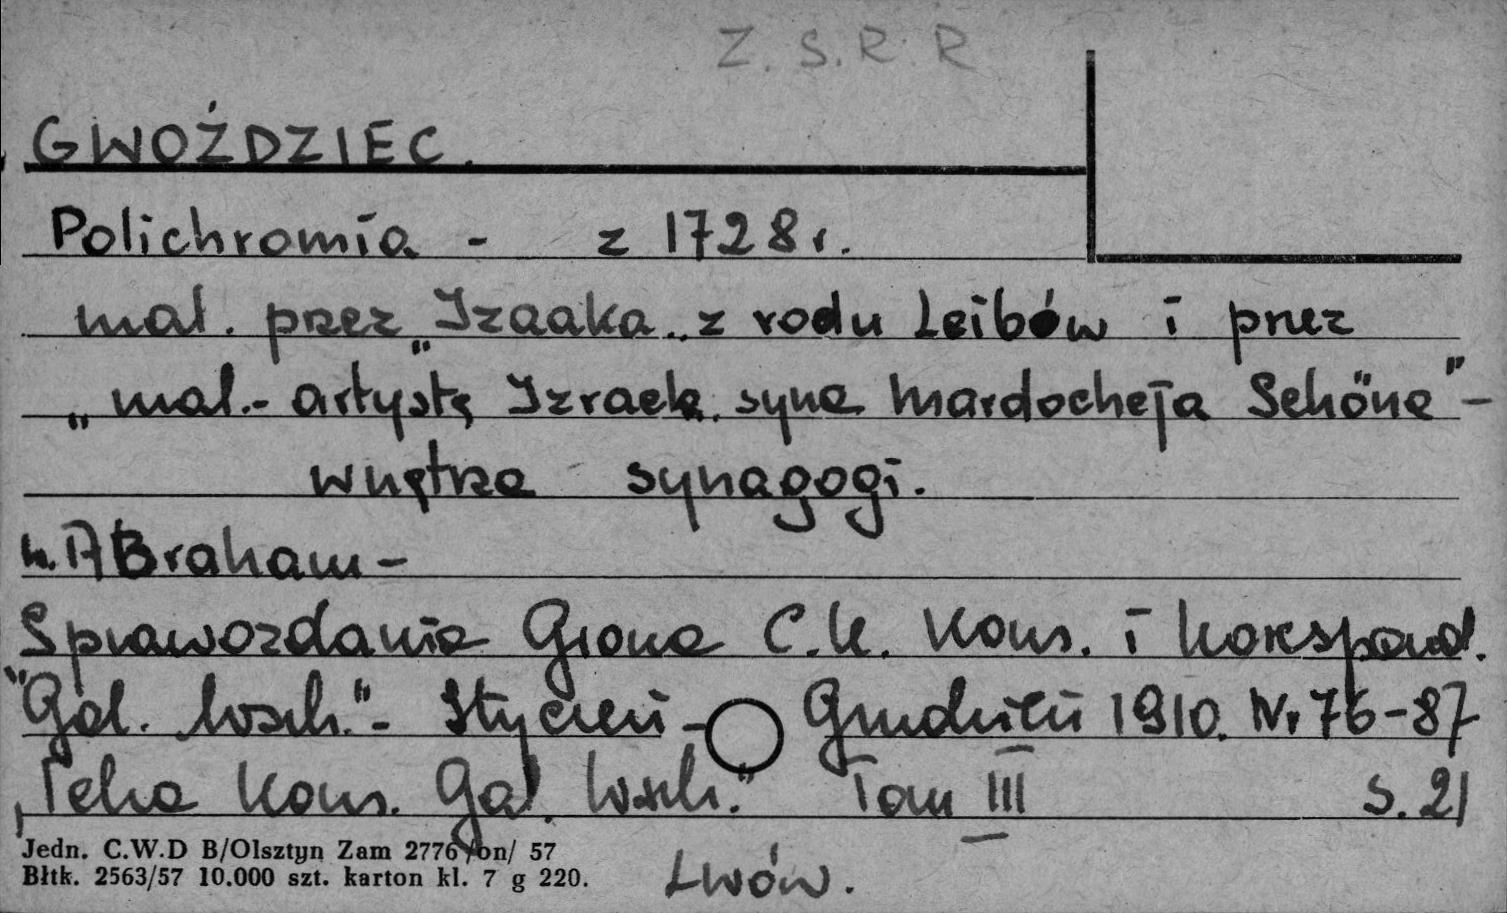 Z. S. R. R
GWOŹDZIEC.
Polichromia - z 1728 r.
mal. przez "Izaaka z rodu Leibów i przez
„mal.- artystę Izraela syna Mardocheja Schöna" -
wnętrze synagogi.
W. ABraham -
Sprawozdania Grona C.K. Kons. i korespond.
"Gal. Wsch." - Styczeń - Grudzień 1910. Nr 76-87
„Teka Kons. Gal. Wsch." Tom III s. 21
Jedn. C.W.D B/Olsztyn Zam 2776/on/ 57
Błtk. 2563/57 10.000 szt. karton kl. 7 g 220.
Lwów.